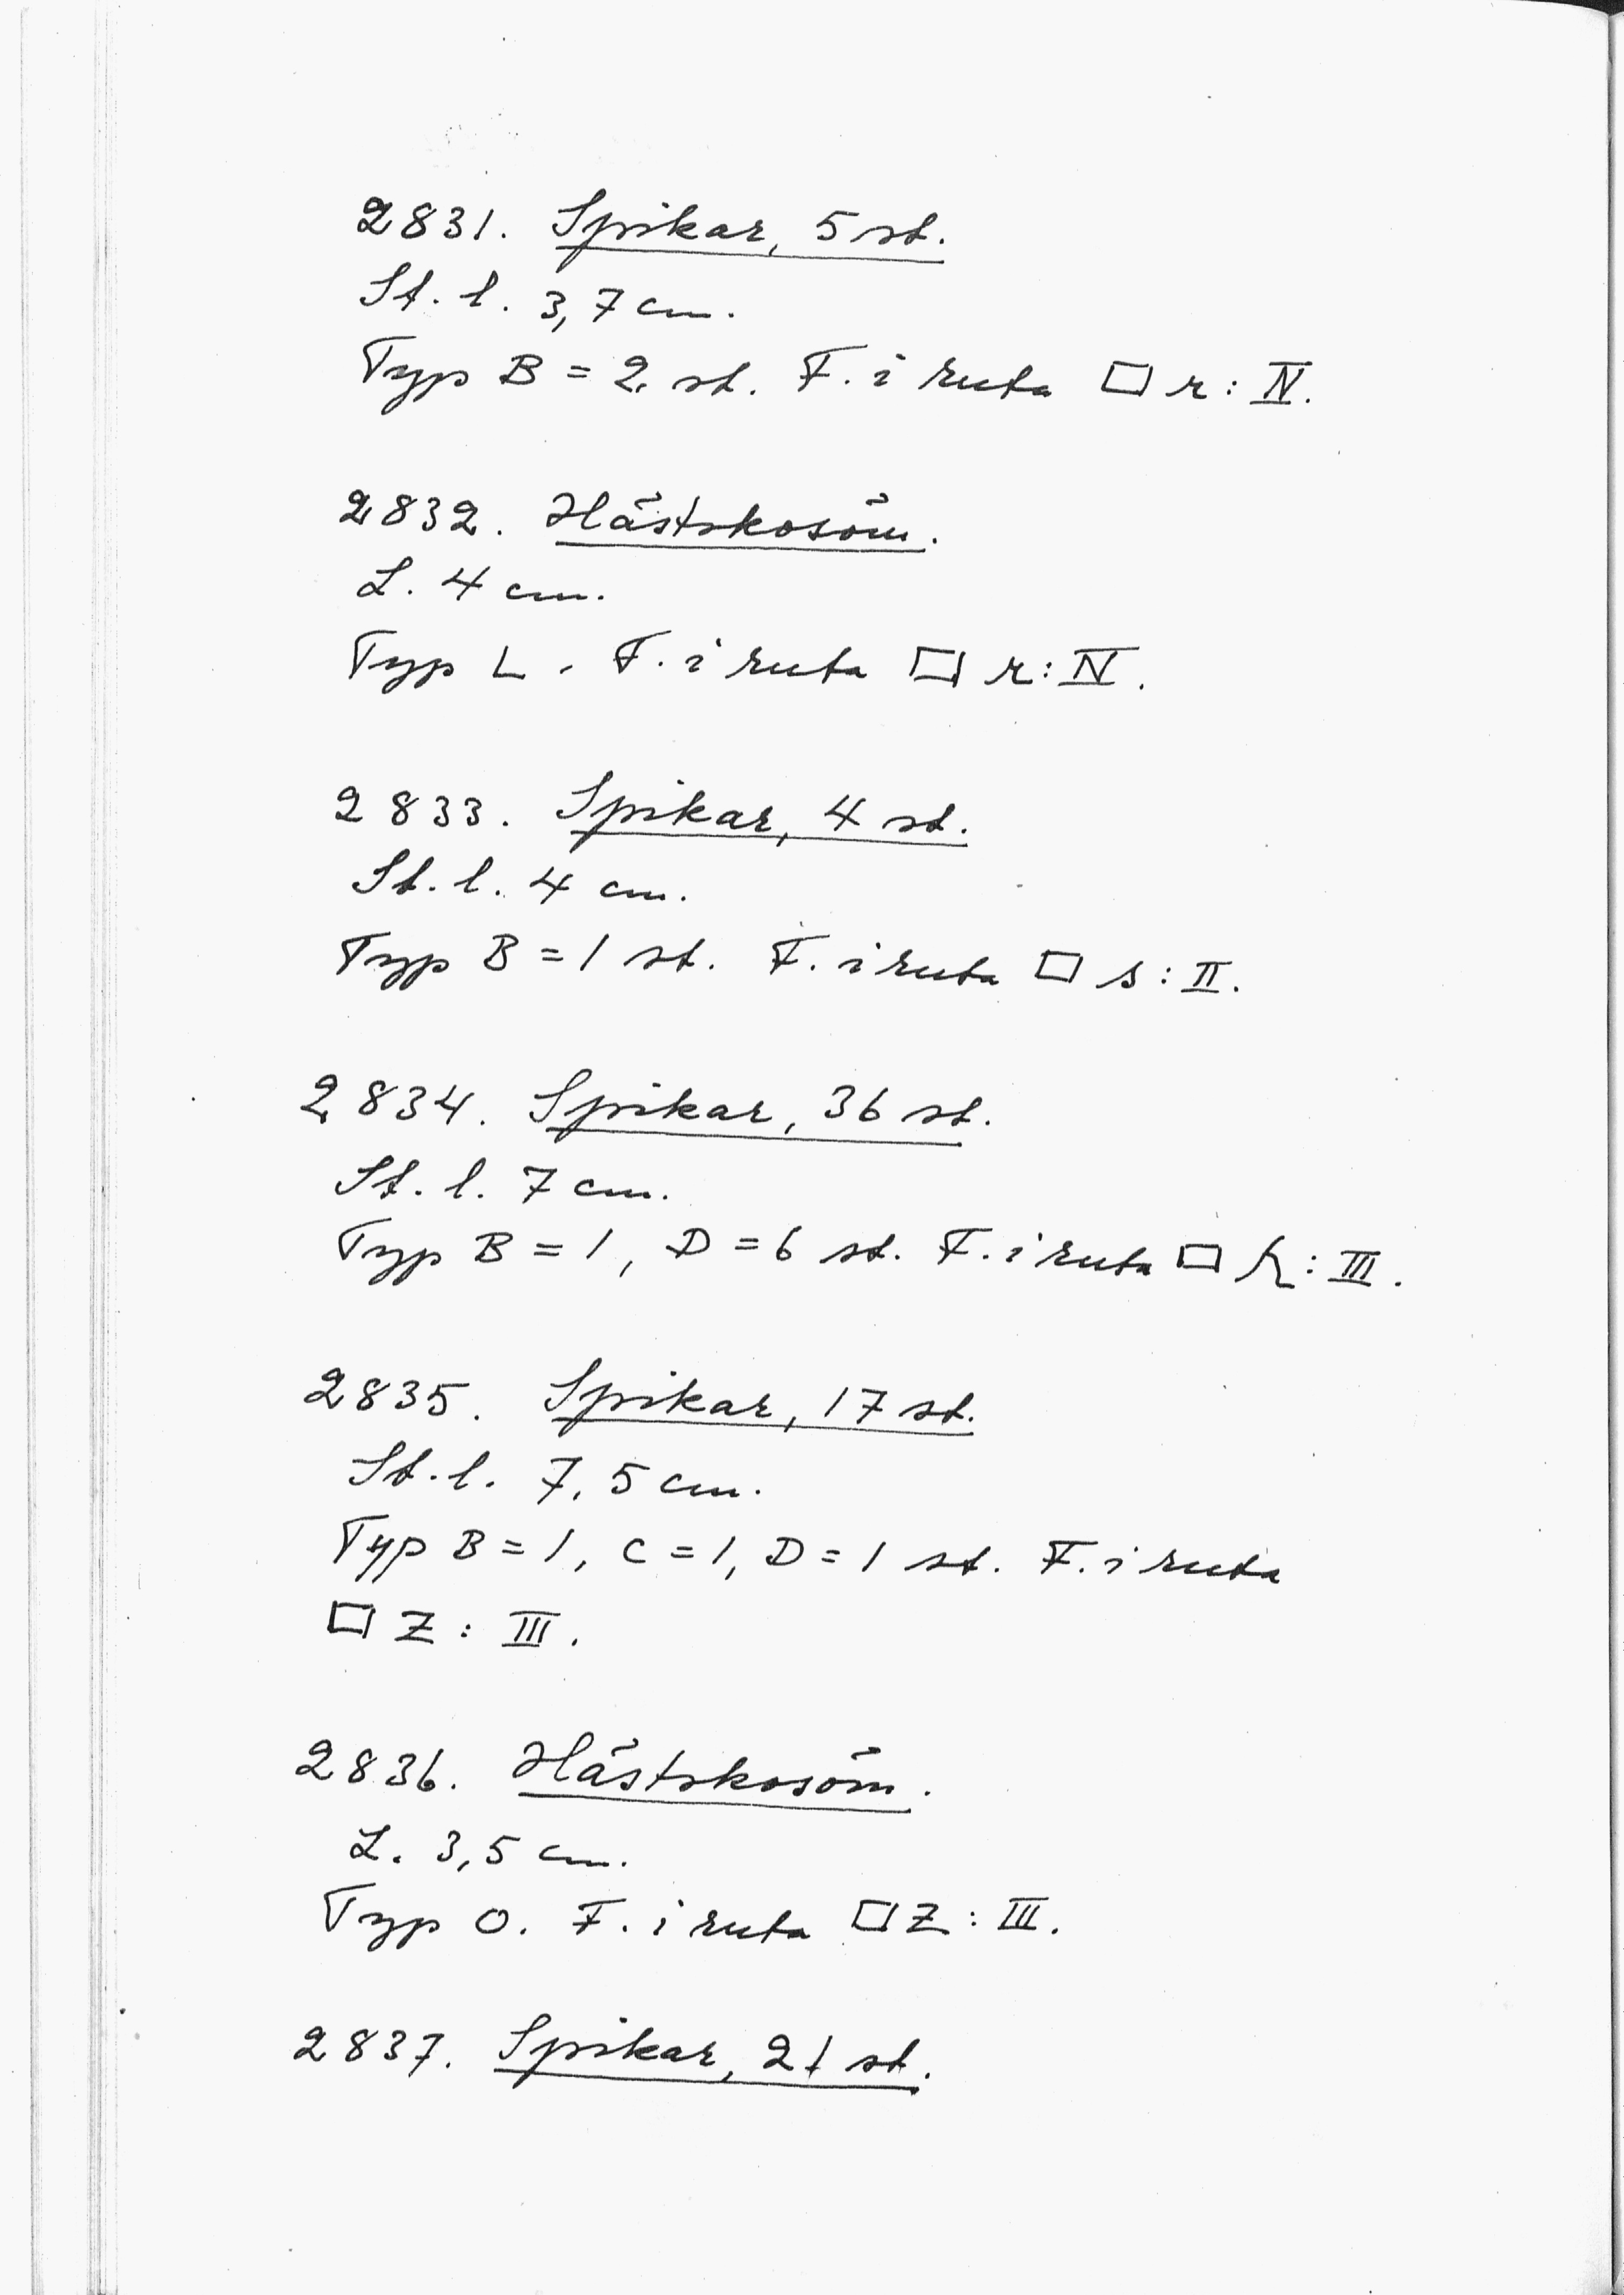 2831. Spikar, 5 st.
St. l. 3,7 cm.
Typ B = 2 st. F. i ruta □ r: IV.
2832. Hästskosöm.
L. 4 cm.
Typ L. F. i ruta □ r: IV.
2833. Spikar, 4 st.
St. l. 4 cm.
Typ B = 1 st. F. i ruta □ s: II.
2834. Spikar, 36 st.
St. l. 7 cm.
Typ B = 1, D = 6 st. F. i ruta □ h: III.
2835. Spikar, 17 st.
St. l. 7,5 cm.
Typ B = 1, C = 1, D = 1 st. F. i ruta
□ Z: III.
2836. Hästskosöm.
L. 3,5 cm.
Typ O. F. i ruta □ Z: III.
2837. Spikar, 21 st.